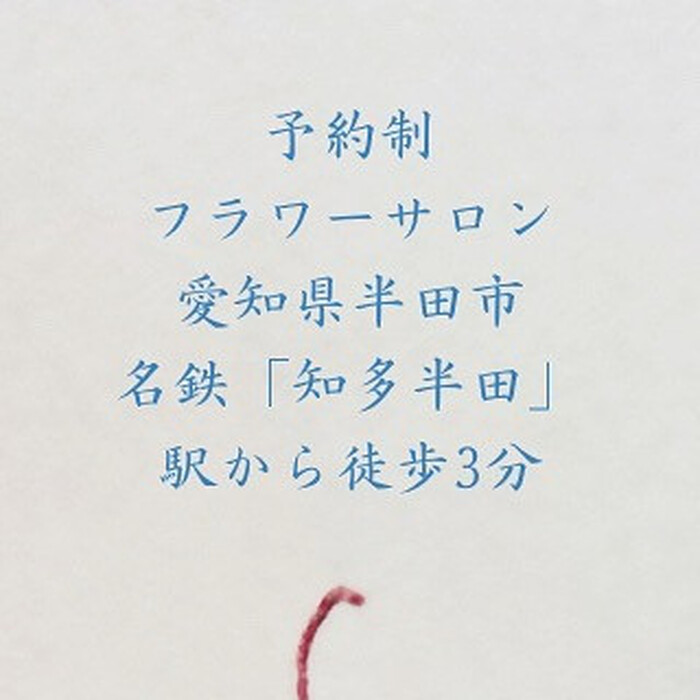 予約制
フラワーサロン
愛知県半田市
名鉄「知多半田」
駅から徒歩3分